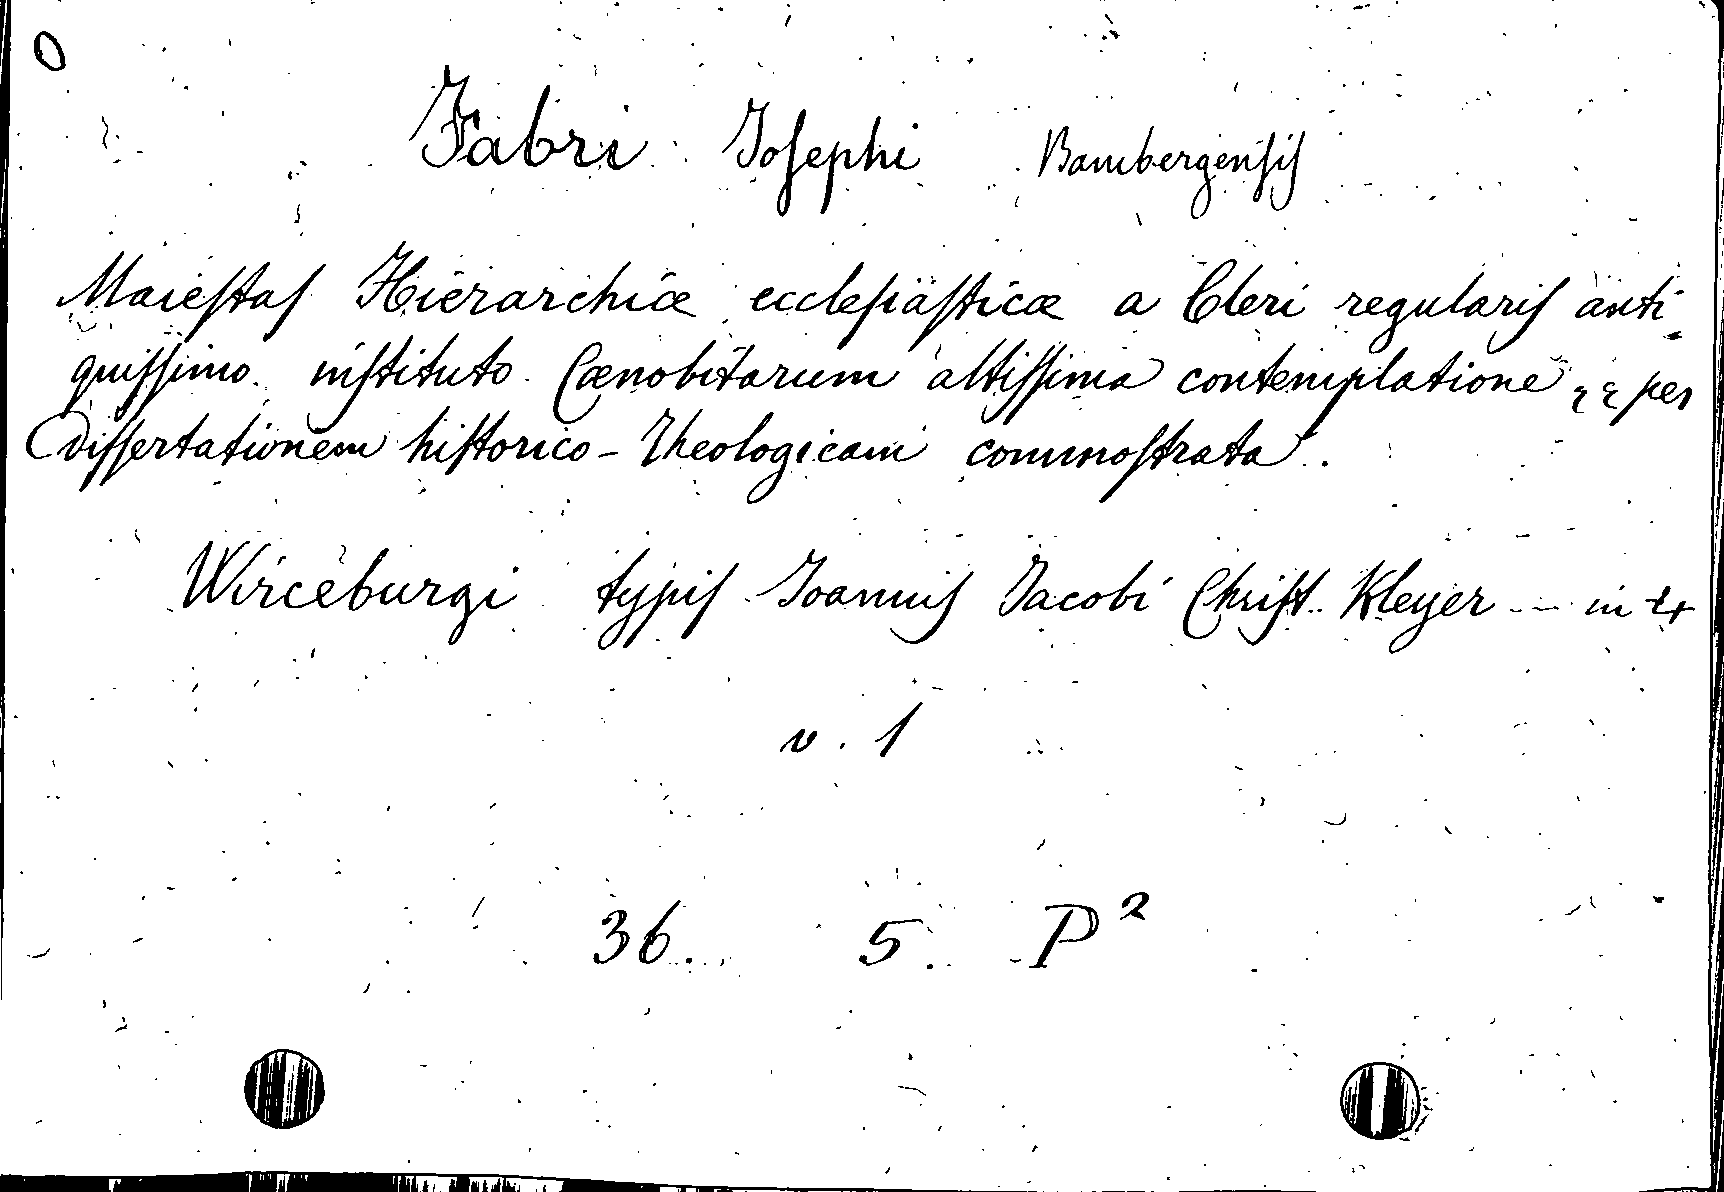 0
Fabri Josephi Bambergensis
Maiestas Hierarchiæ ecclesiasticæ a Cleri regularis anti-
quissimo instituto Cœnobitarum altissima contemplatione per
Dissertationem historico-Theologicam commostrata.
Wirceburgi typis Joannis Jacobi Christ. Kleyer — in 4
v. 1
36. 5. P²